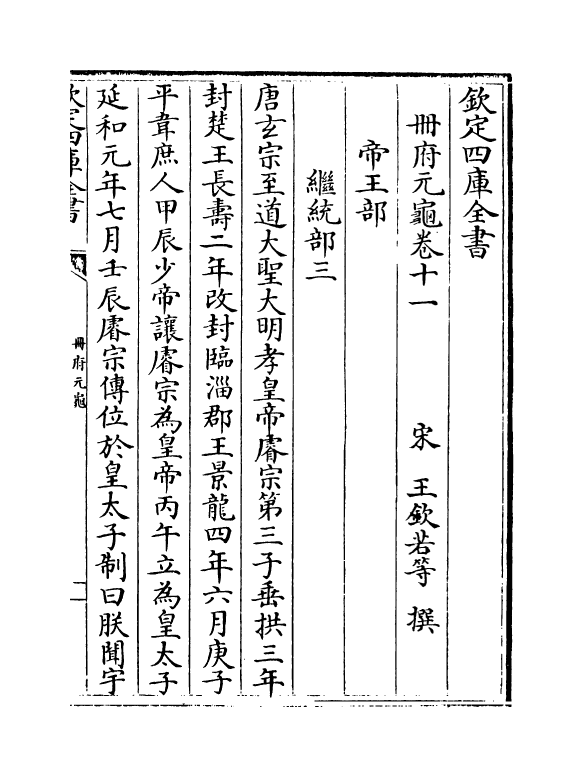 欽定四庫全書
冊府元龜卷十一　　　宋　王欽若等　撰
帝王部
繼統部三
唐玄宗至道大聖大明孝皇帝睿宗第三子垂拱三年
封楚王長壽二年改封臨淄郡王景龍四年六月庚子
平韋庶人甲辰少帝讓睿宗為皇帝丙午立為皇太子
延和元年七月壬辰睿宗傳位於皇太子制曰朕聞宇
欽定四庫全書　冊府元龜　一